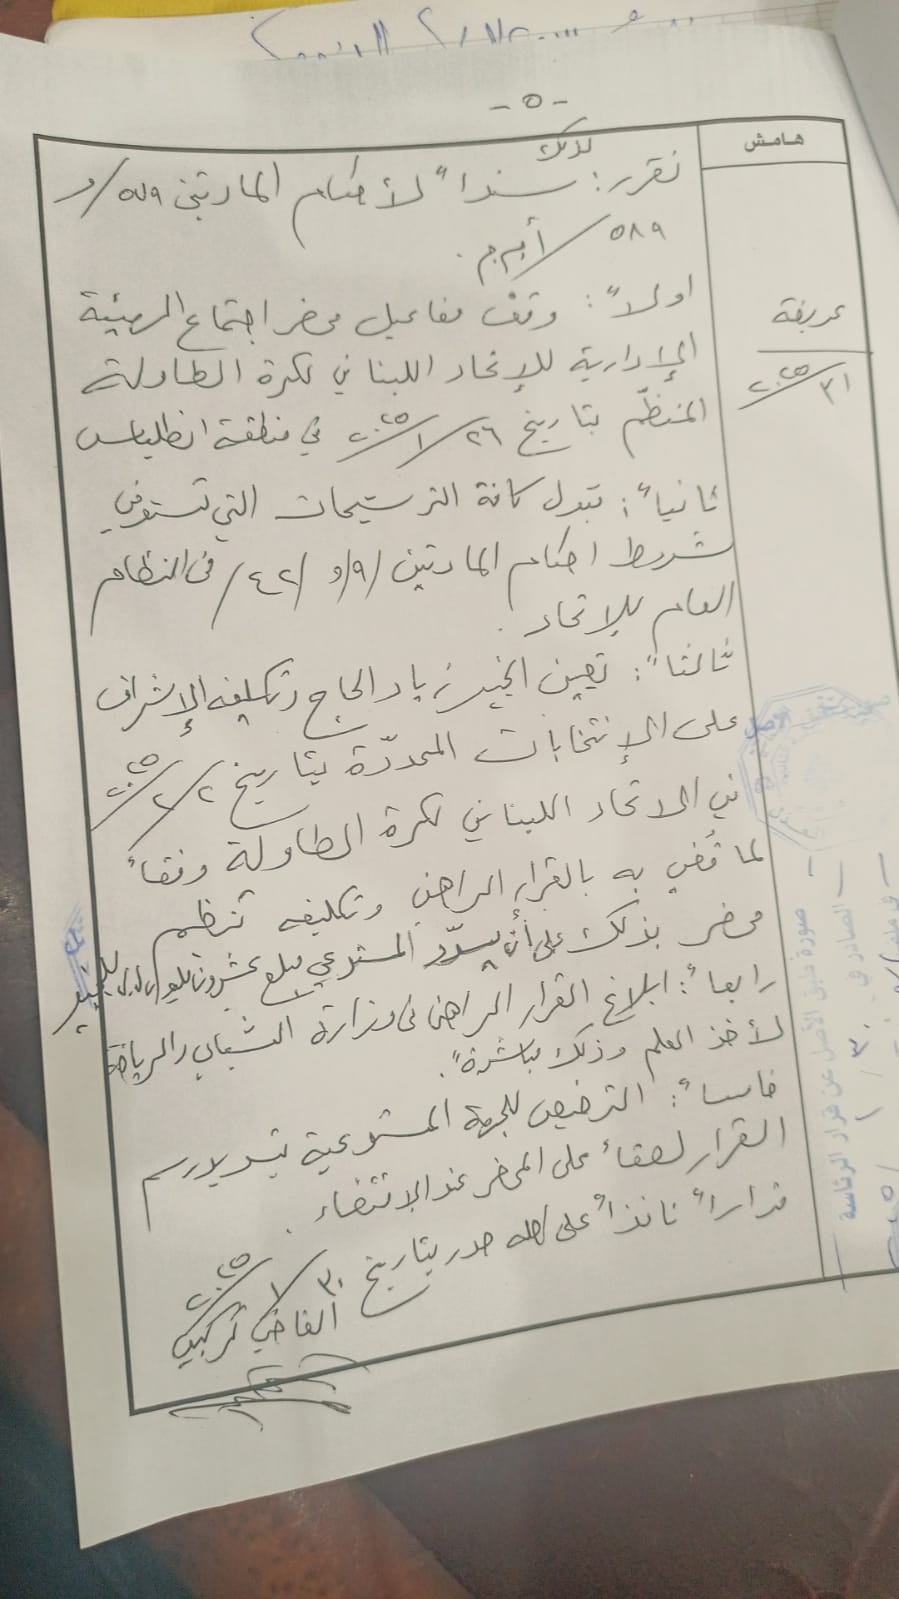 - ٥ -
هامش
لذلك
نقرر: سنداً لأحكام المادتين ٥٧٩/ و
٥٨٩/ أ.م.م.
اولاً: وقف مفاعيل محضر اجتماع الهيئة
الإدارية للإتحاد اللبناني لكرة الطاولة
المنظّم بتاريخ ٢٦/١/٢٠٢٥ في منطقة انطلياس
ثانياً: قبول كافة الترشيحات التي تستوفي
شروط احكام المادتين /٩/ و /٤٢/ من النظام
العام للاتحاد.
ثالثاً: تعيين الخبير زياد الحاج وتكليفه الإشراف
على الإنتخابات المحددّة بتاريخ ٢/٢/٢٠٢٥
في الاتحاد اللبناني لكرة الطاولة وفقاً
لما قُضي به بالقرار الراهن وتكليفه تنظيم
محضر بذلك على أن يسدّد المستدعي مبلغ عشرون مليون ل.ل. للخبير
رابعاً: ابلاغ القرار الراهن من وزارة الشباب والرياضة
لأخذ العلم وذلك مباشرةً.
خامساً: الترخيص للجهة المستدعية بتسديد رسم
القرار لصقاً على المحضر عند الإقتضاء.
قراراً نافذاً على اصله صدر بتاريخ ٣٠/١/٢٠٢٥
القاضي
عريضة
٣١/٢٠٢٥
صورة طبق الأصل عن قرار الرئاسة
الصادر في ٣٠/١/